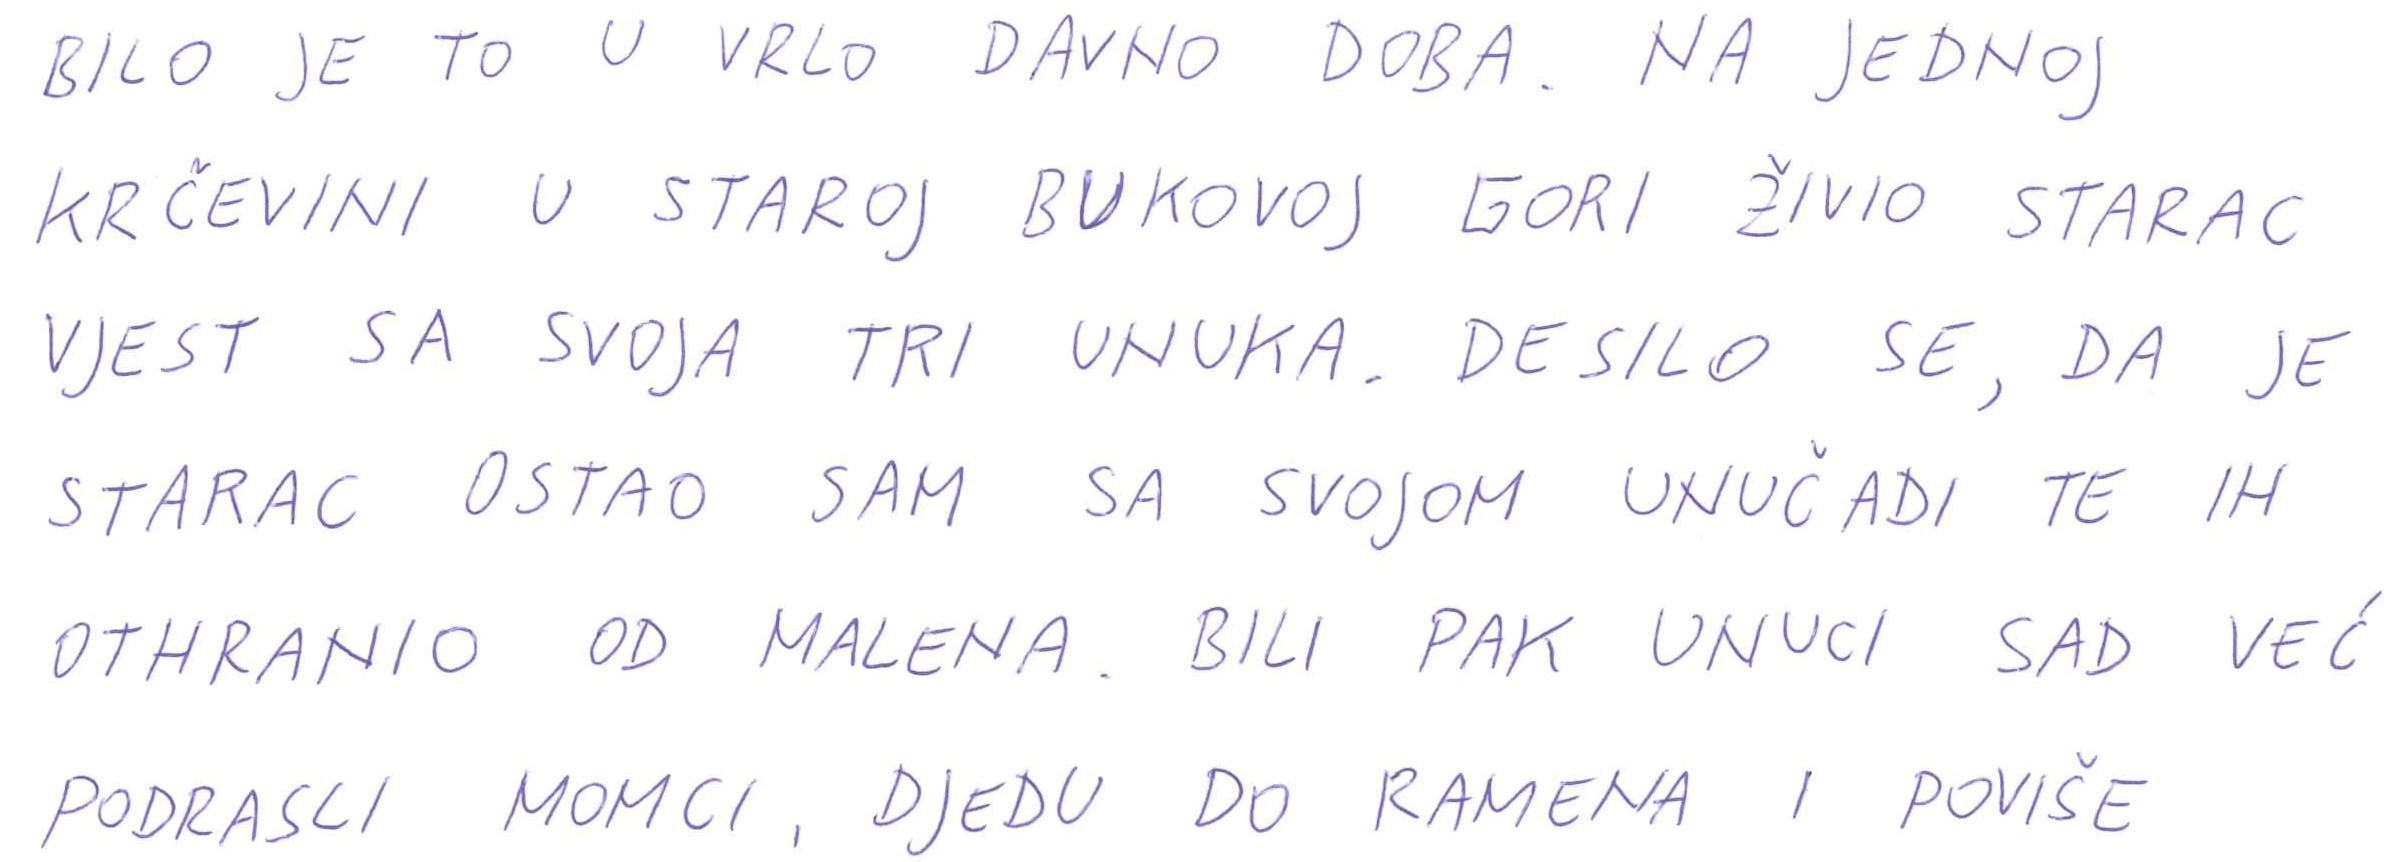 BILO JE TO U VRLO DAVNO DOBA. NA JEDNOJ
KRČEVINI U STAROJ BUKOVOJ GORI ŽIVIO STARAC
VJEST SA SVOJA TRI UNUKA. DESILO SE, DA JE
STARAC OSTAO SAM SA SVOJOM UNUČADI TE IH
OTHRANIO OD MALENA. BILI PAK UNUCI SAD VEĆ
PODRASLI MOMCI, DJEDU DO RAMENA I POVIŠE